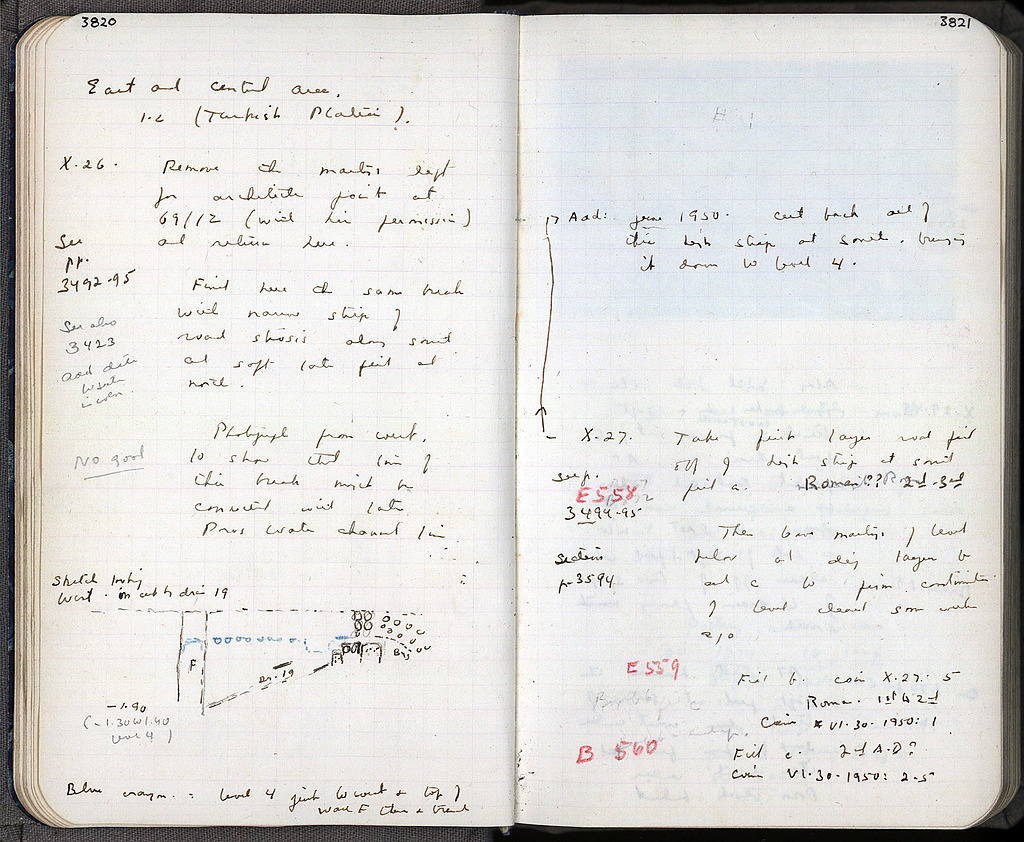 3820
East and central area.
1.2 (Turkish Plateia).
X.26. Remove the martyrs left
for architects point at
69/12 (with his permission)
and return here.
See
pp.
3492-95
Find here the same break
with narrow strip of
road stosis along south
and soft late fill at
north.
See also
3423
add date
in
Photograph from west,
to show that line of
this break must be
connected with late
Pros water channel line
No good
Sketch looking
West. on cut to drain 19
F
dr. 19
B
-1.90
(-1.30 to 1.40
level 4)
Blue crayon: level 4 just to west & top of
wall F then &
3821
Add: June 1950. cut back all of
this high strip at south, bringing
it down to level 4.
X.27. Take first layer road fill
off of high strip at south
fill a. Roman?? 2nd-3rd
see p.
E 558
3494-95
Then have martyrs of level
below and dig layer b
and c to firm continuation
of level cleared some weeks
ago
section
p. 3594
E 559
Fill b. coin X.27: 5
Roman. 1st to 2nd
Coin VI.30.1950: 1
B 560
Fill c. 2nd A.D?
Coin VI.30.1950: 2-5